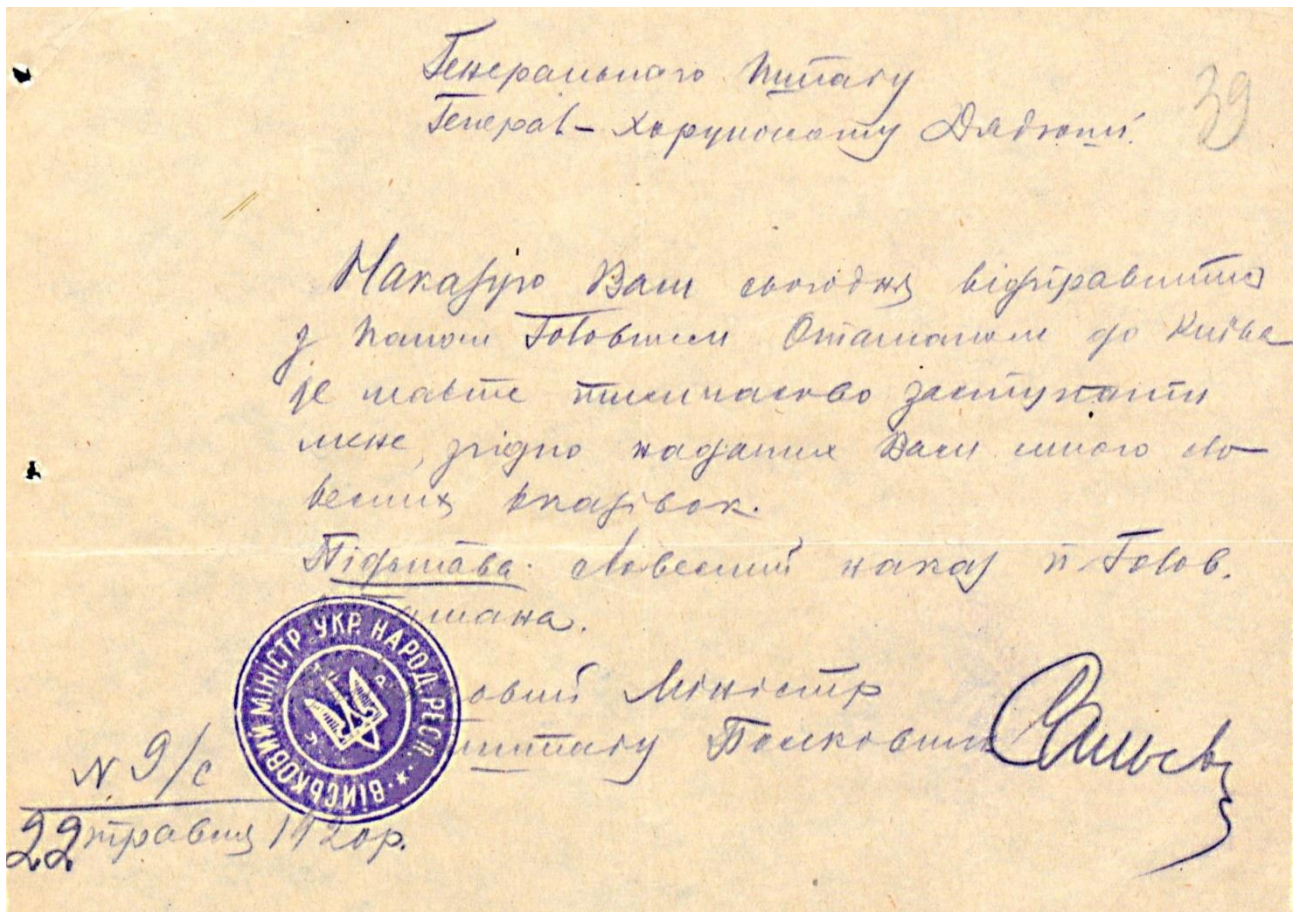 Генерального Штабу
Генерал-Хорунжому Дядюші.
39
Наказую Вам сьогодня відправитись
з паном Головним Отаманом до Київа
де маєте тимчасово заступати
мене, згідно наданих Вам мною сло-
весних вказівок.
Підстава: словесний наказ п. Голов.
Отамана.
овий Міністр
штабу Полковник
ВІЙСЬКОВИЙ МІНІСТР УКР. НАРОД. РЕСП.
N 9/с
22 травня 1920 р.